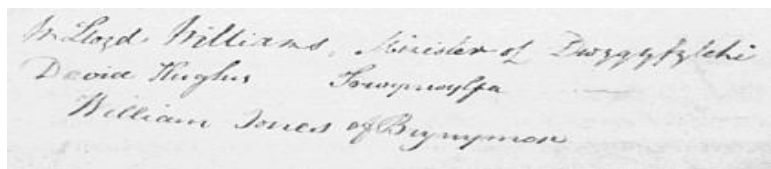 Wm Lloyd Williams, Minister of Dwygyfylchi
David Hughes Trwynwylfa
William Jones of Brynymor